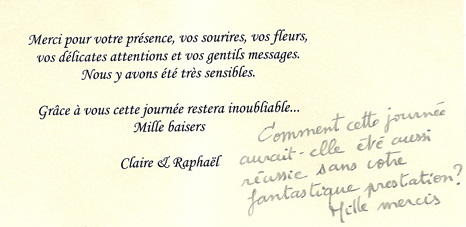 Merci pour votre présence, vos sourires, vos fleurs,
vos délicates attentions et vos gentils messages.
Nous y avons été très sensibles.
Grâce à vous cette journée restera inoubliable...
Mille baisers
Claire & Raphaël
Comment cette journée
aurait-elle été aussi
réussie sans votre
fantastique prestation?
Mille mercis